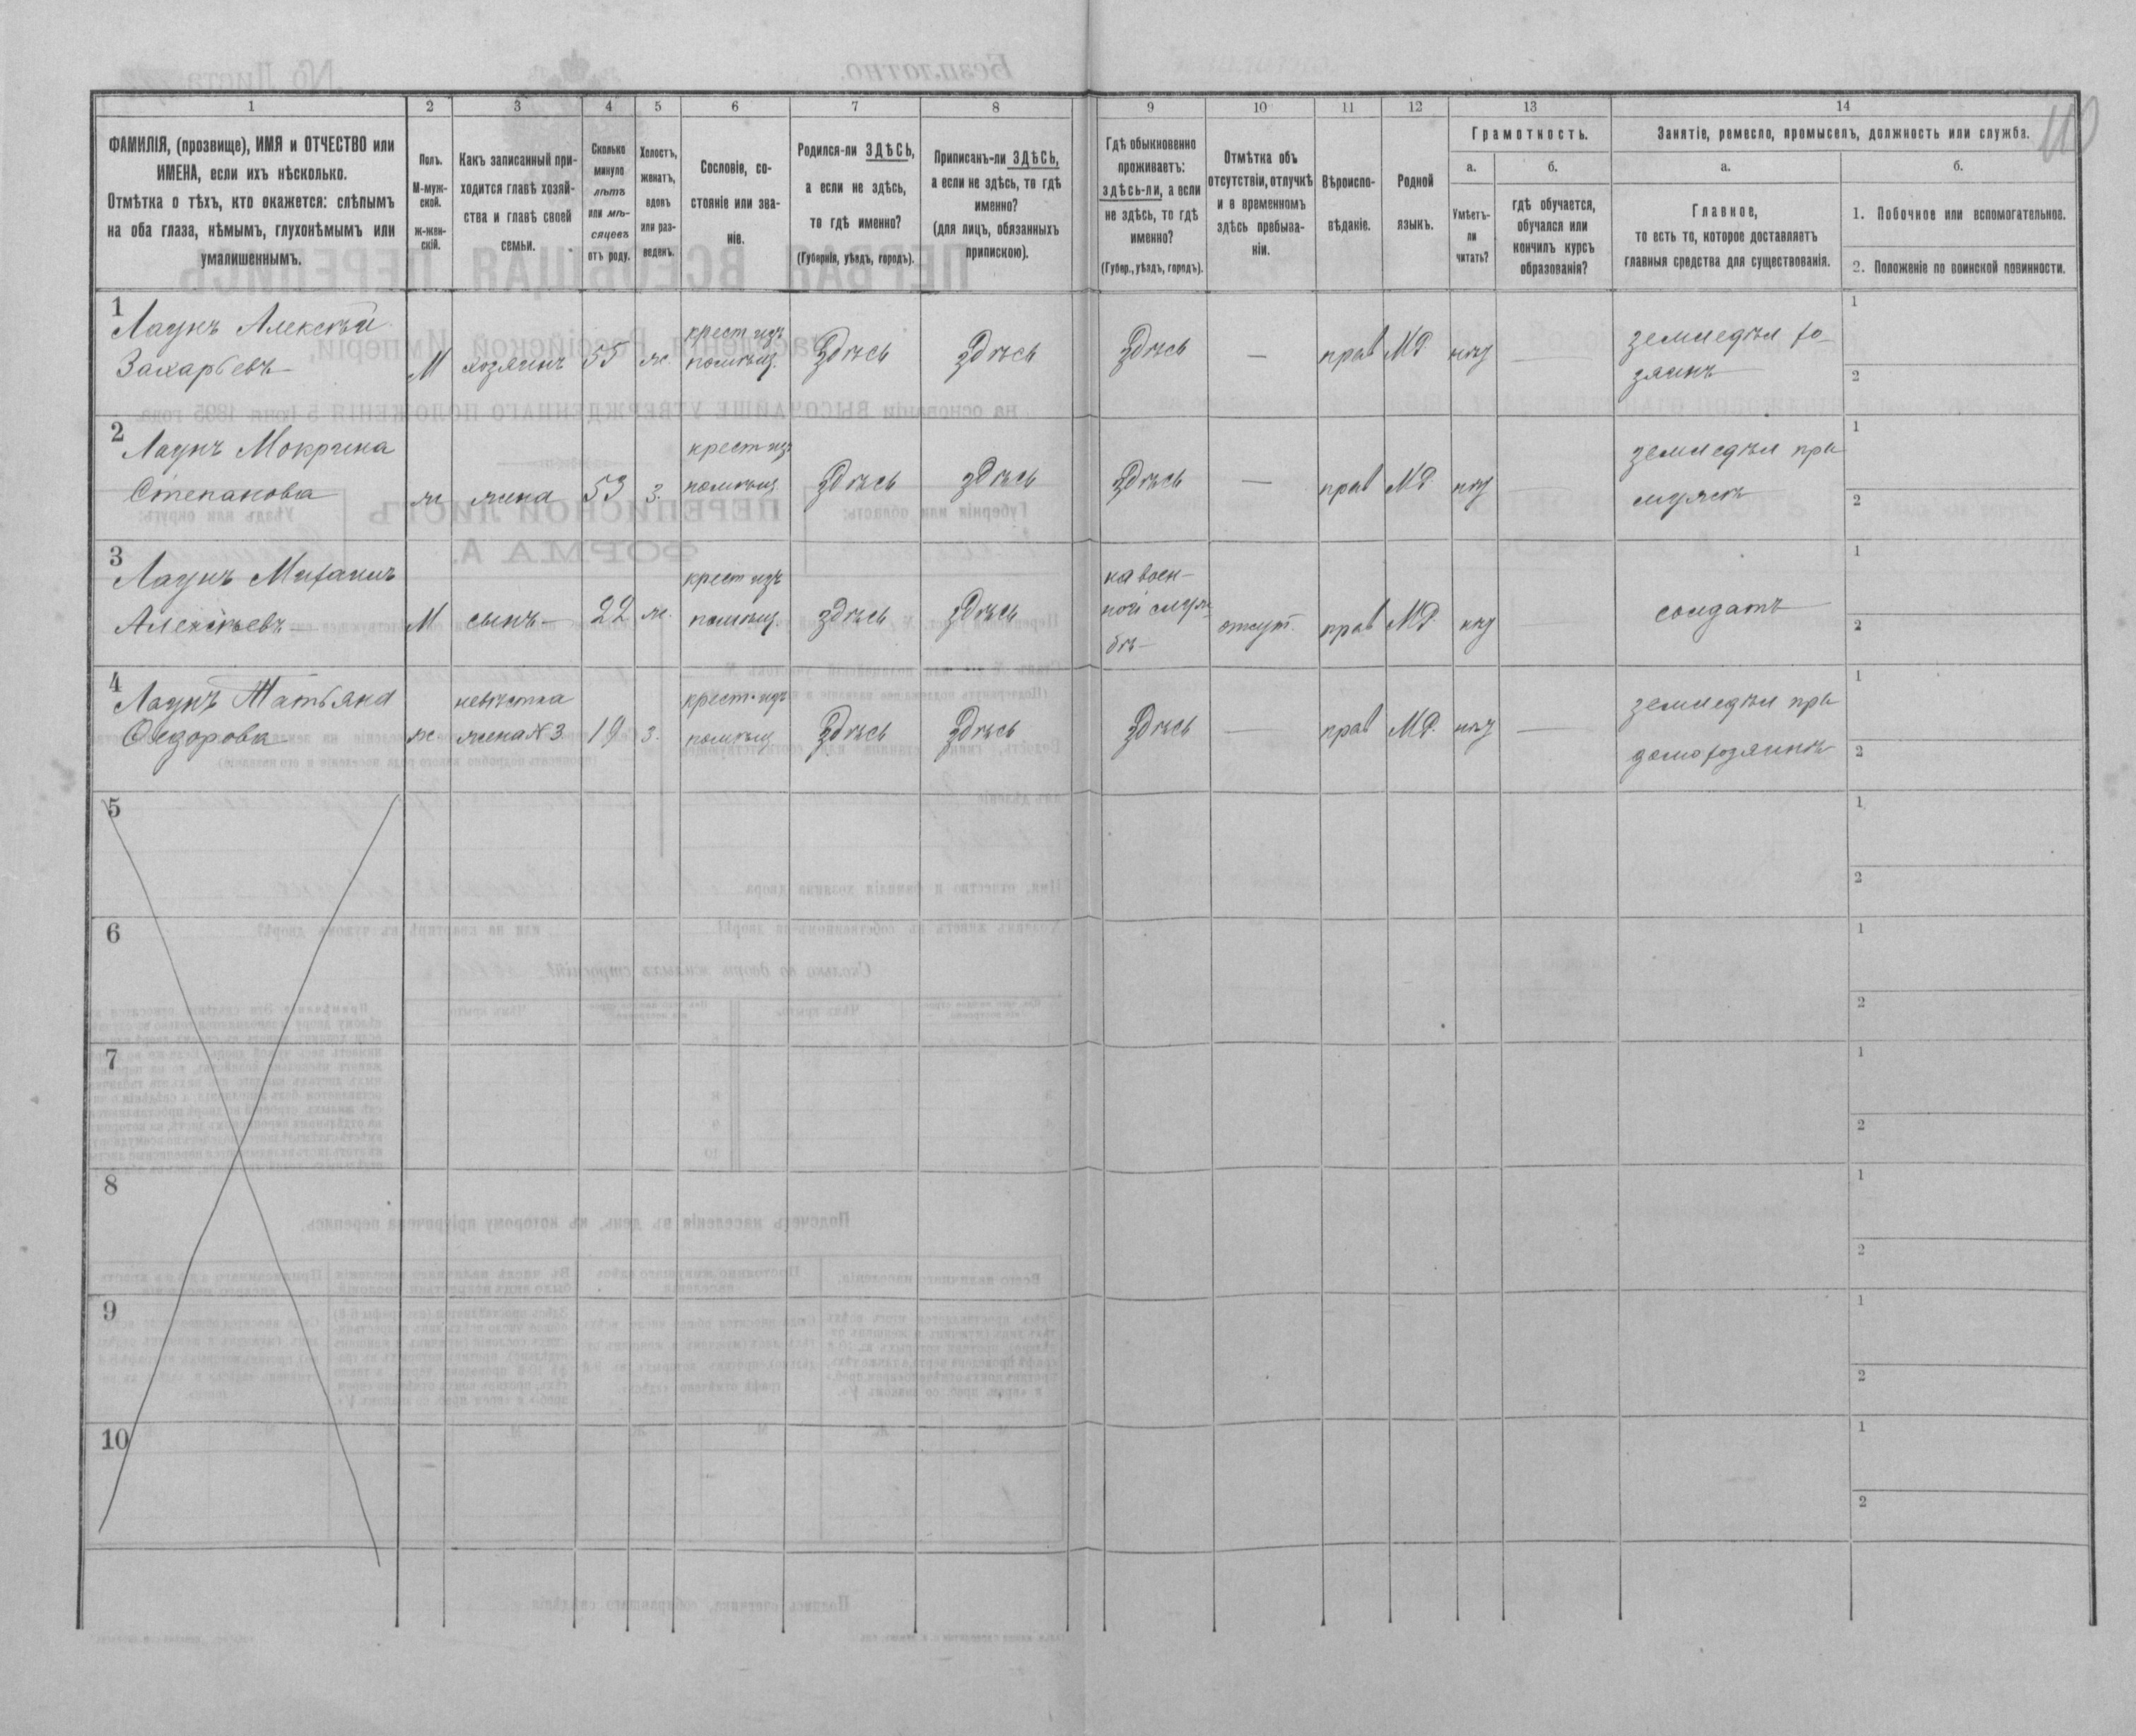 1 2 3 4 5 6 7 8 9 10 11 12 13 14
ФАМИЛІЯ, (прозвище), ИМЯ и ОТЧЕСТВО или
ИМЕНА, если ихъ нѣсколько.
Отмѣтка о тѣхъ, кто окажется: слѣпымъ
на оба глаза, нѣмымъ, глухонѣмымъ или
умалишеннымъ.
Полъ.
М-муж-
ской.
ж-жен-
скій.
Какъ записанный при-
ходится главѣ хозяй-
ства и главѣ своей
семьи.
Сколько
минуло
лѣтъ
или мѣ-
сяцевъ
отъ роду.
Холостъ,
женатъ,
вдовъ
или раз-
веденъ.
Сословіе, со-
стояніе или зва-
ніе.
Родился-ли ЗДѢСЬ,
а если не здѣсь,
то гдѣ именно?
(Губернія, уѣздъ, городъ).
Приписанъ-ли ЗДѢСЬ,
а если не здѣсь, то гдѣ
именно?
(для лицъ, обязанныхъ
припискою).
Гдѣ обыкновенно
проживаетъ:
здѣсь-ли, а если
не здѣсь, то гдѣ
именно?
(Губер., уѣздъ, городъ).
Отмѣтка объ
отсутствіи, отлучкѣ
и о временномъ
здѣсь пребыва-
ніи.
Вѣроиспо-
вѣданіе.
Родной
языкъ.
Грамотность.
а.
Умѣетъ-
ли
читать?
б.
гдѣ обучается,
обучался или
кончилъ курсъ
образованія?
Занятіе, ремесло, промыселъ, должность или служба.
а.
Главное,
то есть то, которое доставляетъ
главныя средства для существованія.
б.
1. Побочное или вспомогательное.
2. Положеніе по воинской повинности.
1
Лаунъ Алексѣй
Захарьевъ
М хозяинъ 55 ж.
крест изъ
помѣщ.
Здѣсь здѣсь Здѣсь — прав МР нѣт —
земледѣл хо-
зяинъ
1
2
2
Лаунъ Мокрина
Степанова
ж жена 53 з.
крест изъ
помѣщ
Здѣсь здѣсь Здѣсь — прав МР нѣт —
земледѣл при
мужѣ
1
2
3
Лаунъ
Алексѣевъ
М сынъ 22 ж.
крест изъ
помѣщ.
здѣсь здѣсь
на воен-
ной служ-
бѣ
отсут. прав МР. нѣт
солдатъ
1
2
4
Лаунъ Татьяна
Федорова
ж.
невѣстка
жена №3
19 з.
крест. изъ
помѣщ
Здѣсь Здѣсь Здѣсь — прав МР. нѣт —
земледѣл при
домохозяинѣ
1
2
5
1
2
6
1
2
7
1
2
8
1
2
9
1
2
10
1
2